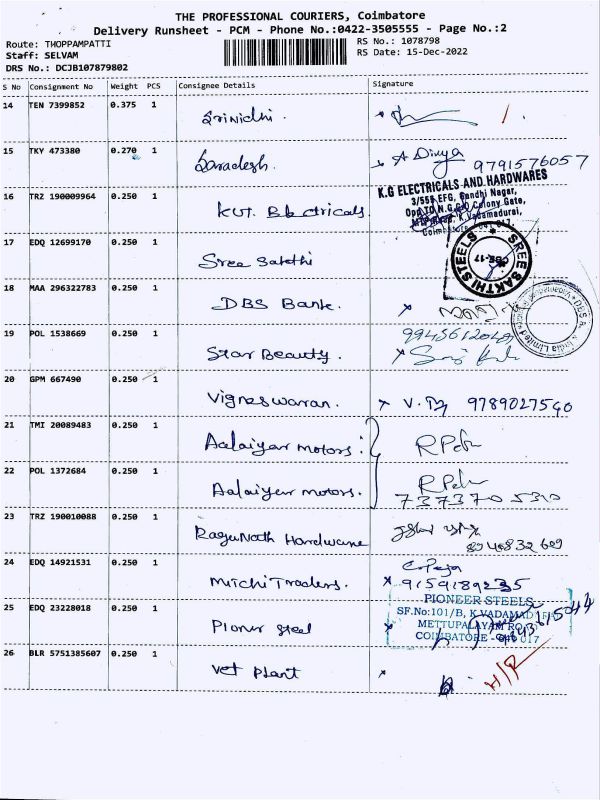 THE PROFESSIONAL COURIERS, Coimbatore
Delivery Runsheet - PCM - Phone No.:0422-3505555 - Page No.:2
Route: THOPPAMPATTI RS No.: 1078798
Staff: SELVAM RS Date: 15-Dec-2022
DRS No.: DCJB107879802
S No Consignment No Weight PCS Consignee Details Signature
14 TEN 7399852 0.375 1 Srinidhi.
15 TKY 473380 0.270 1 A Divya 9791576057
K.G ELECTRICALS AND HARDWARES
3/55 EFG, Gandhi Nagar,
Opp.To N.G.G.O Colony Gate,
K.Vadamadurai,
16 TRZ 190009964 0.250 1 Electricals
17 EDQ 12699170 0.250 1 Sree Sakthi
SREE SAKTHI STEELS CBE-17
18 MAA 296322783 0.250 1 DBS Bank.
India Limited
19 POL 1538669 0.250 1 Star Beauty.
20 GPM 667490 0.250 1 Vigneswaran. 9789027540
21 TMI 20089483 0.250 1 Aalaiyan motors.
22 POL 1372684 0.250 1 Aalaiyan motors.
737370 5310
23 TRZ 190010088 0.250 1 Ragunath Hardware
24 EDQ 14921531 0.250 1 Mirchi Traders.
9159189235
PIONEER STEELS
SF.No:101/B, K.VADAMADURAI
METTUPALAYAM RO
COIMBATORE - 641 017
25 EDQ 23228018 0.250 1 Pioner steel
26 BLR 5751385607 0.250 1 Vet Plant H/R